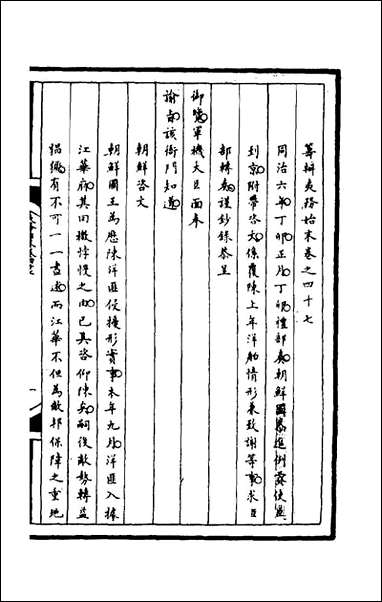 籌辦夷務始末卷之四十七
同治六年丁卯正月丁卯禮部奏朝鮮國恭進例貢使臣
到京附齎咨文係覆陳上年洋舶情形兼致謝等事求臣
部轉奏謹鈔錄恭呈
御覽軍機大臣面奉
諭旨該衙門知道
朝鮮咨文
朝鮮國王為歷陳洋匪侵擾形實事本年九月洋匪入據
江華府其回撤悖慢之由已具咨仰陳矣嗣後敵勢轉益
猖獗有不可一一盡述而江華不但為敝邦保障之重地